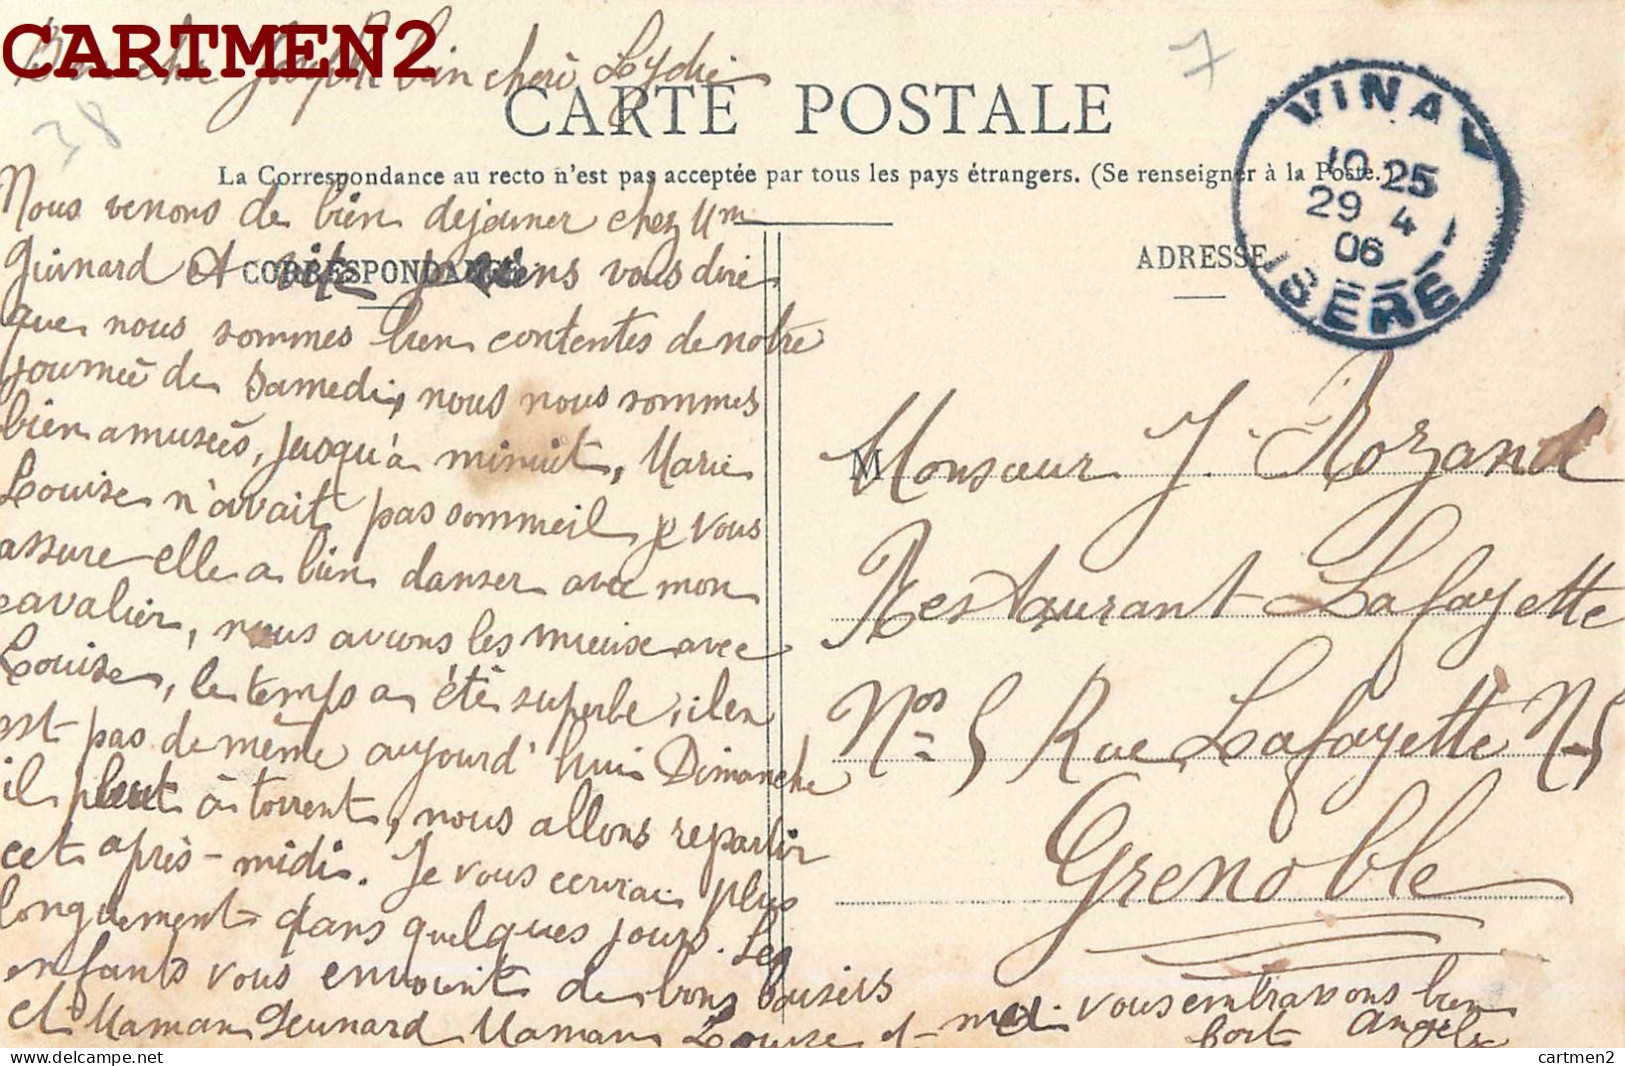 CARTMEN2
Bien cher Joseph bien cherè Lydie
38
7
CARTE POSTALE
La Correspondance au recto n'est pas acceptée par tous les pays étrangers. (Se renseigner à la Poste.)
VINAY
10 25
29 4
06
ISERE
CORRESPONDANCE
ADRESSE
Nous venons de bien dejeuner chez Mm
Guinard et vite je viens vous dire
que nous sommes bien contentes de notre
journeé de Samedi, nous nous sommes
bien amuseés, jusqu'à minuit, Marie
Louise n'avait pas sommeil je vous
assure elle a bien danser avec mon
cavalier, nous avions les mieuse avec
Louise, le temps a été superbe, il en
est pas de même aujourd'hui Dimanche
il pleut à torrent, nous allons repartir
cet après-midi. Je vous ecrirai plus
longuement dans quelques jours. Les
enfants vous envoient de bons baisers
et Maman Guinard Maman Louise et moi vous embrassons bien
fort Angèle
M Monsieur J. Rozand
Restaurant Lafayette
Nos 5 Rue Lafayette N 5
Grenoble
cartmen2 for Delcampe.net
cartmen2